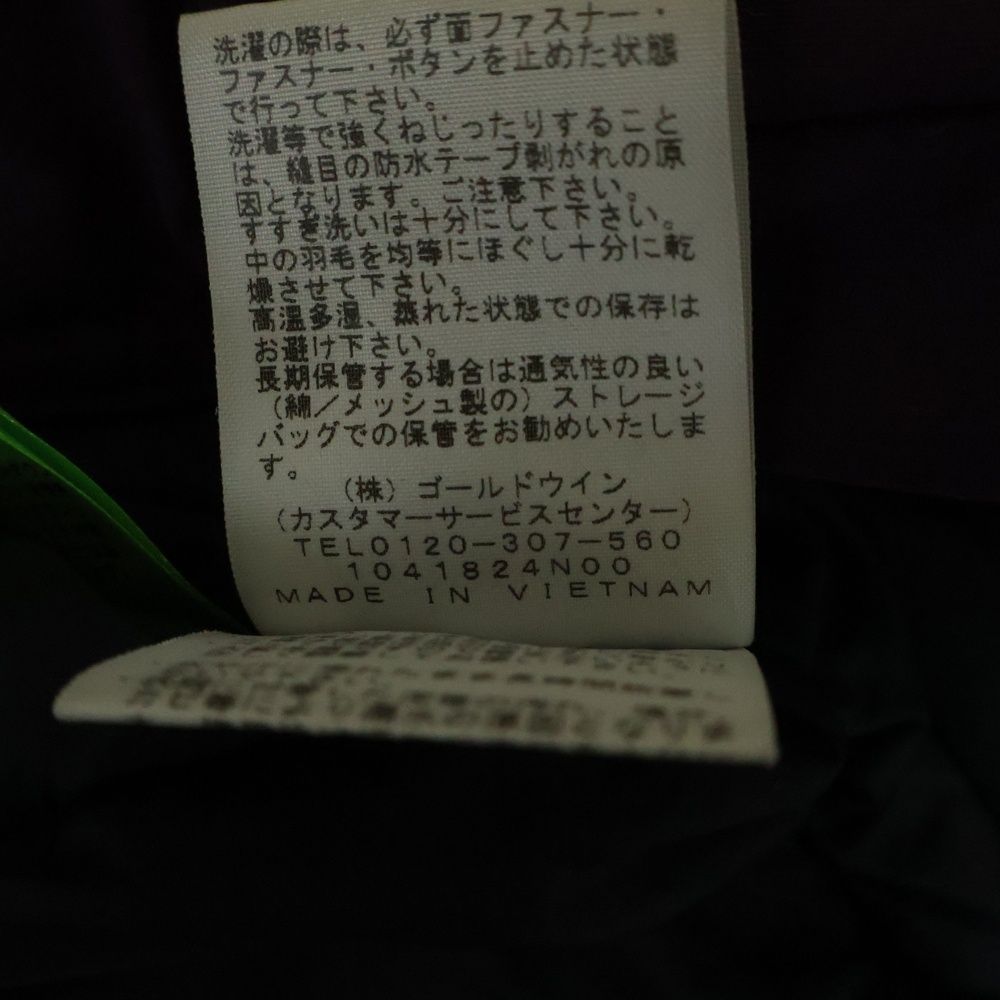 洗濯の際は、必ず面ファスナー・
ファスナー・ボタンを止めた状態
で行って下さい。
洗濯等で強くねじったりすること
は、縫目の防水テープ剥がれの原
因となります。ご注意下さい。
すすぎ洗いは十分にして下さい。
中の羽毛を均等にほぐし十分に乾
燥させて下さい。
高温多湿、蒸れた状態での保存は
お避け下さい。
長期保管する場合は通気性の良い
(綿/メッシュ製の)ストレージ
バッグでの保管をお勧めいたしま
す。
(株)ゴールドウイン
(カスタマーサービスセンター)
TEL0120-307-560
1041824N00
MADE IN VIETNAM